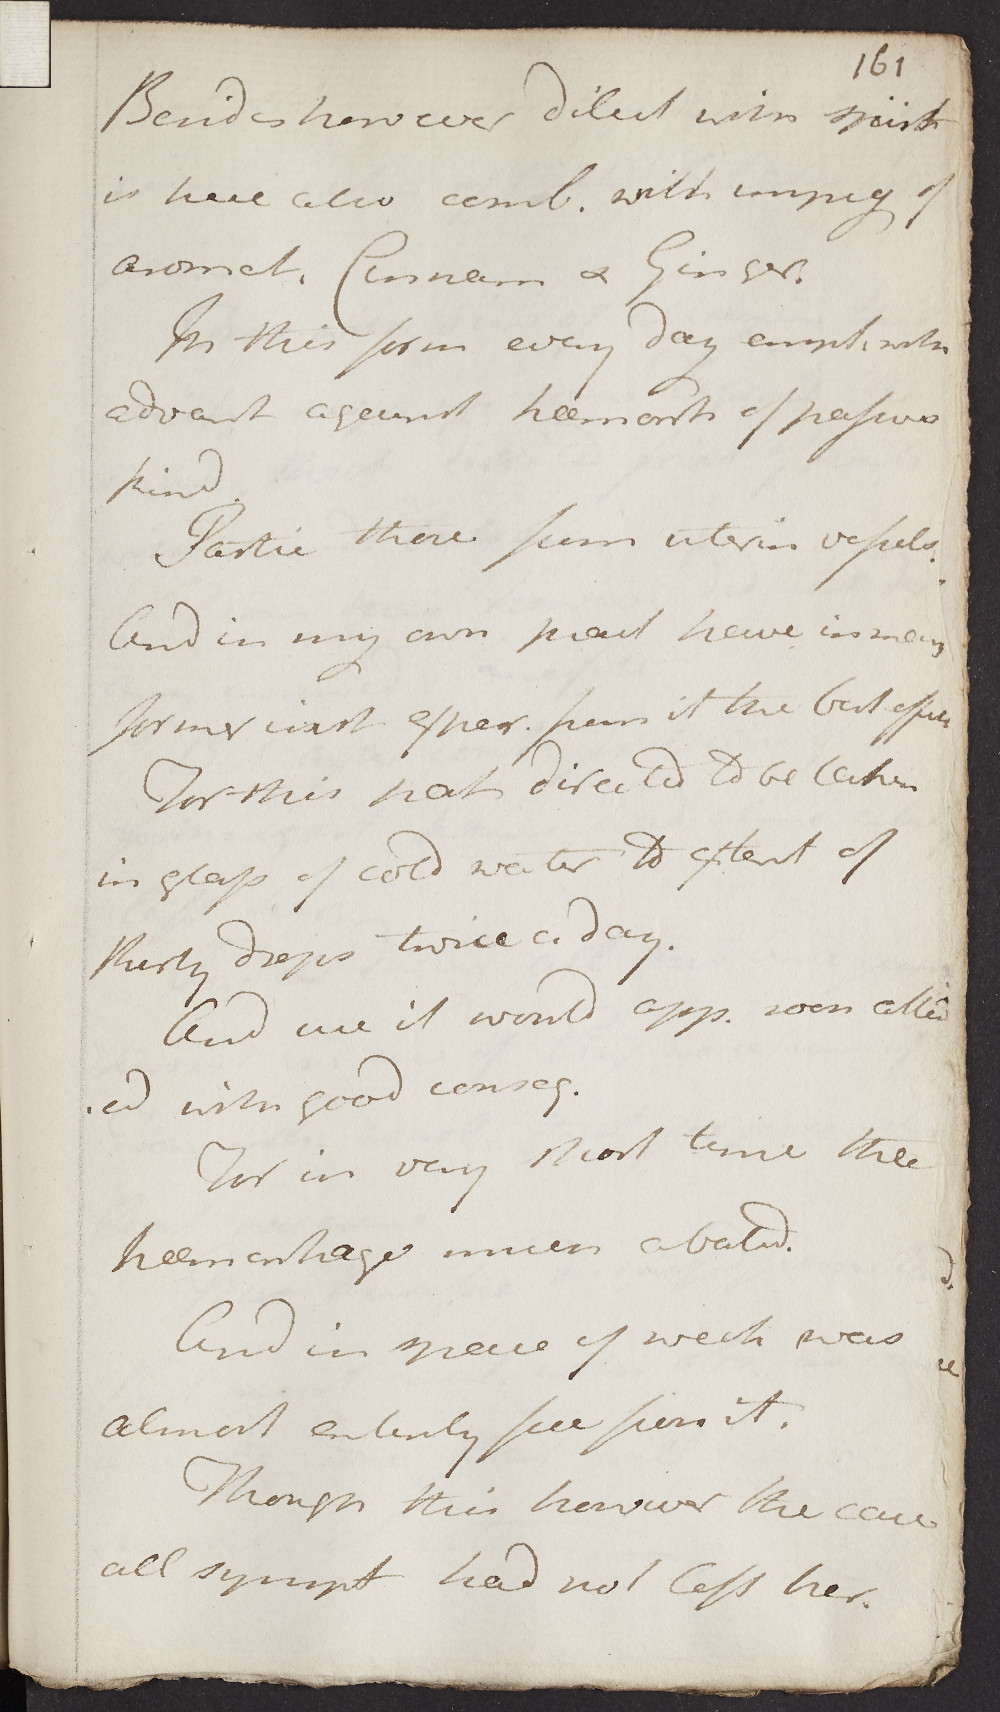 161
Besides however dilut with spirit
is here also comb. with impreg of
aromat. Cinnam & Ginger.
In this form every day empl. with
advant against haemorrh of passive
kind.
Partic those from uterin vessels.
And in my own pract have in many
former inst exper. from it the best effects
For this pat directed to be taken
in glass of cold water to extent of
thirty drops twice a day.
And use it would app. soon attend
.ed with good conseq.
For in very short time the
haemorhage much abated.
And in space of week was
almost entirely free from it.
Though this however the case
all sympt had not left her.